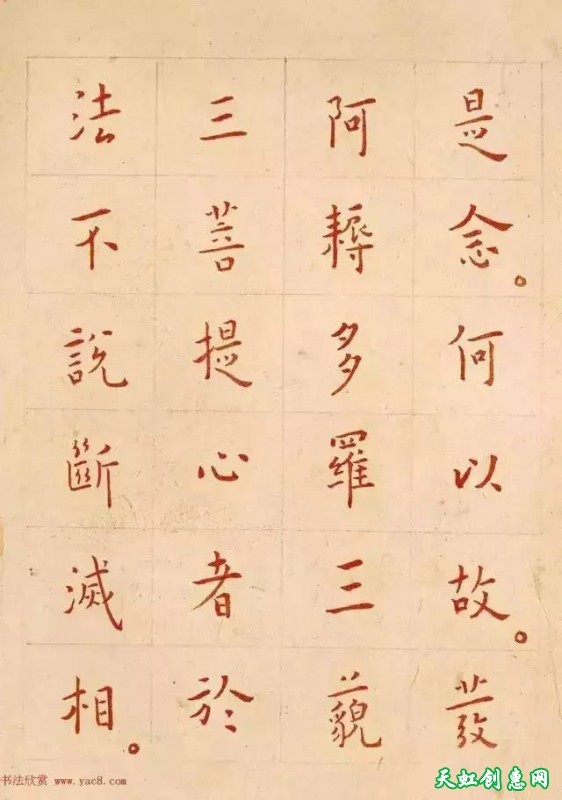 是念。何以故。發
阿耨多羅三藐
三菩提心者於
法不說斷滅相。
书法欣赏 www.yac8.com
天虹创惠网